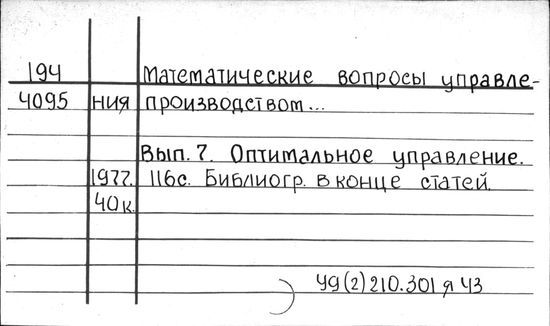 194 Математические вопросы управле-
4095 ния производством...
Вып. 7. Оптимальное управление.
1977. 116с. Библиогр. в конце статей.
40к.
У9(2)210.301 я 43